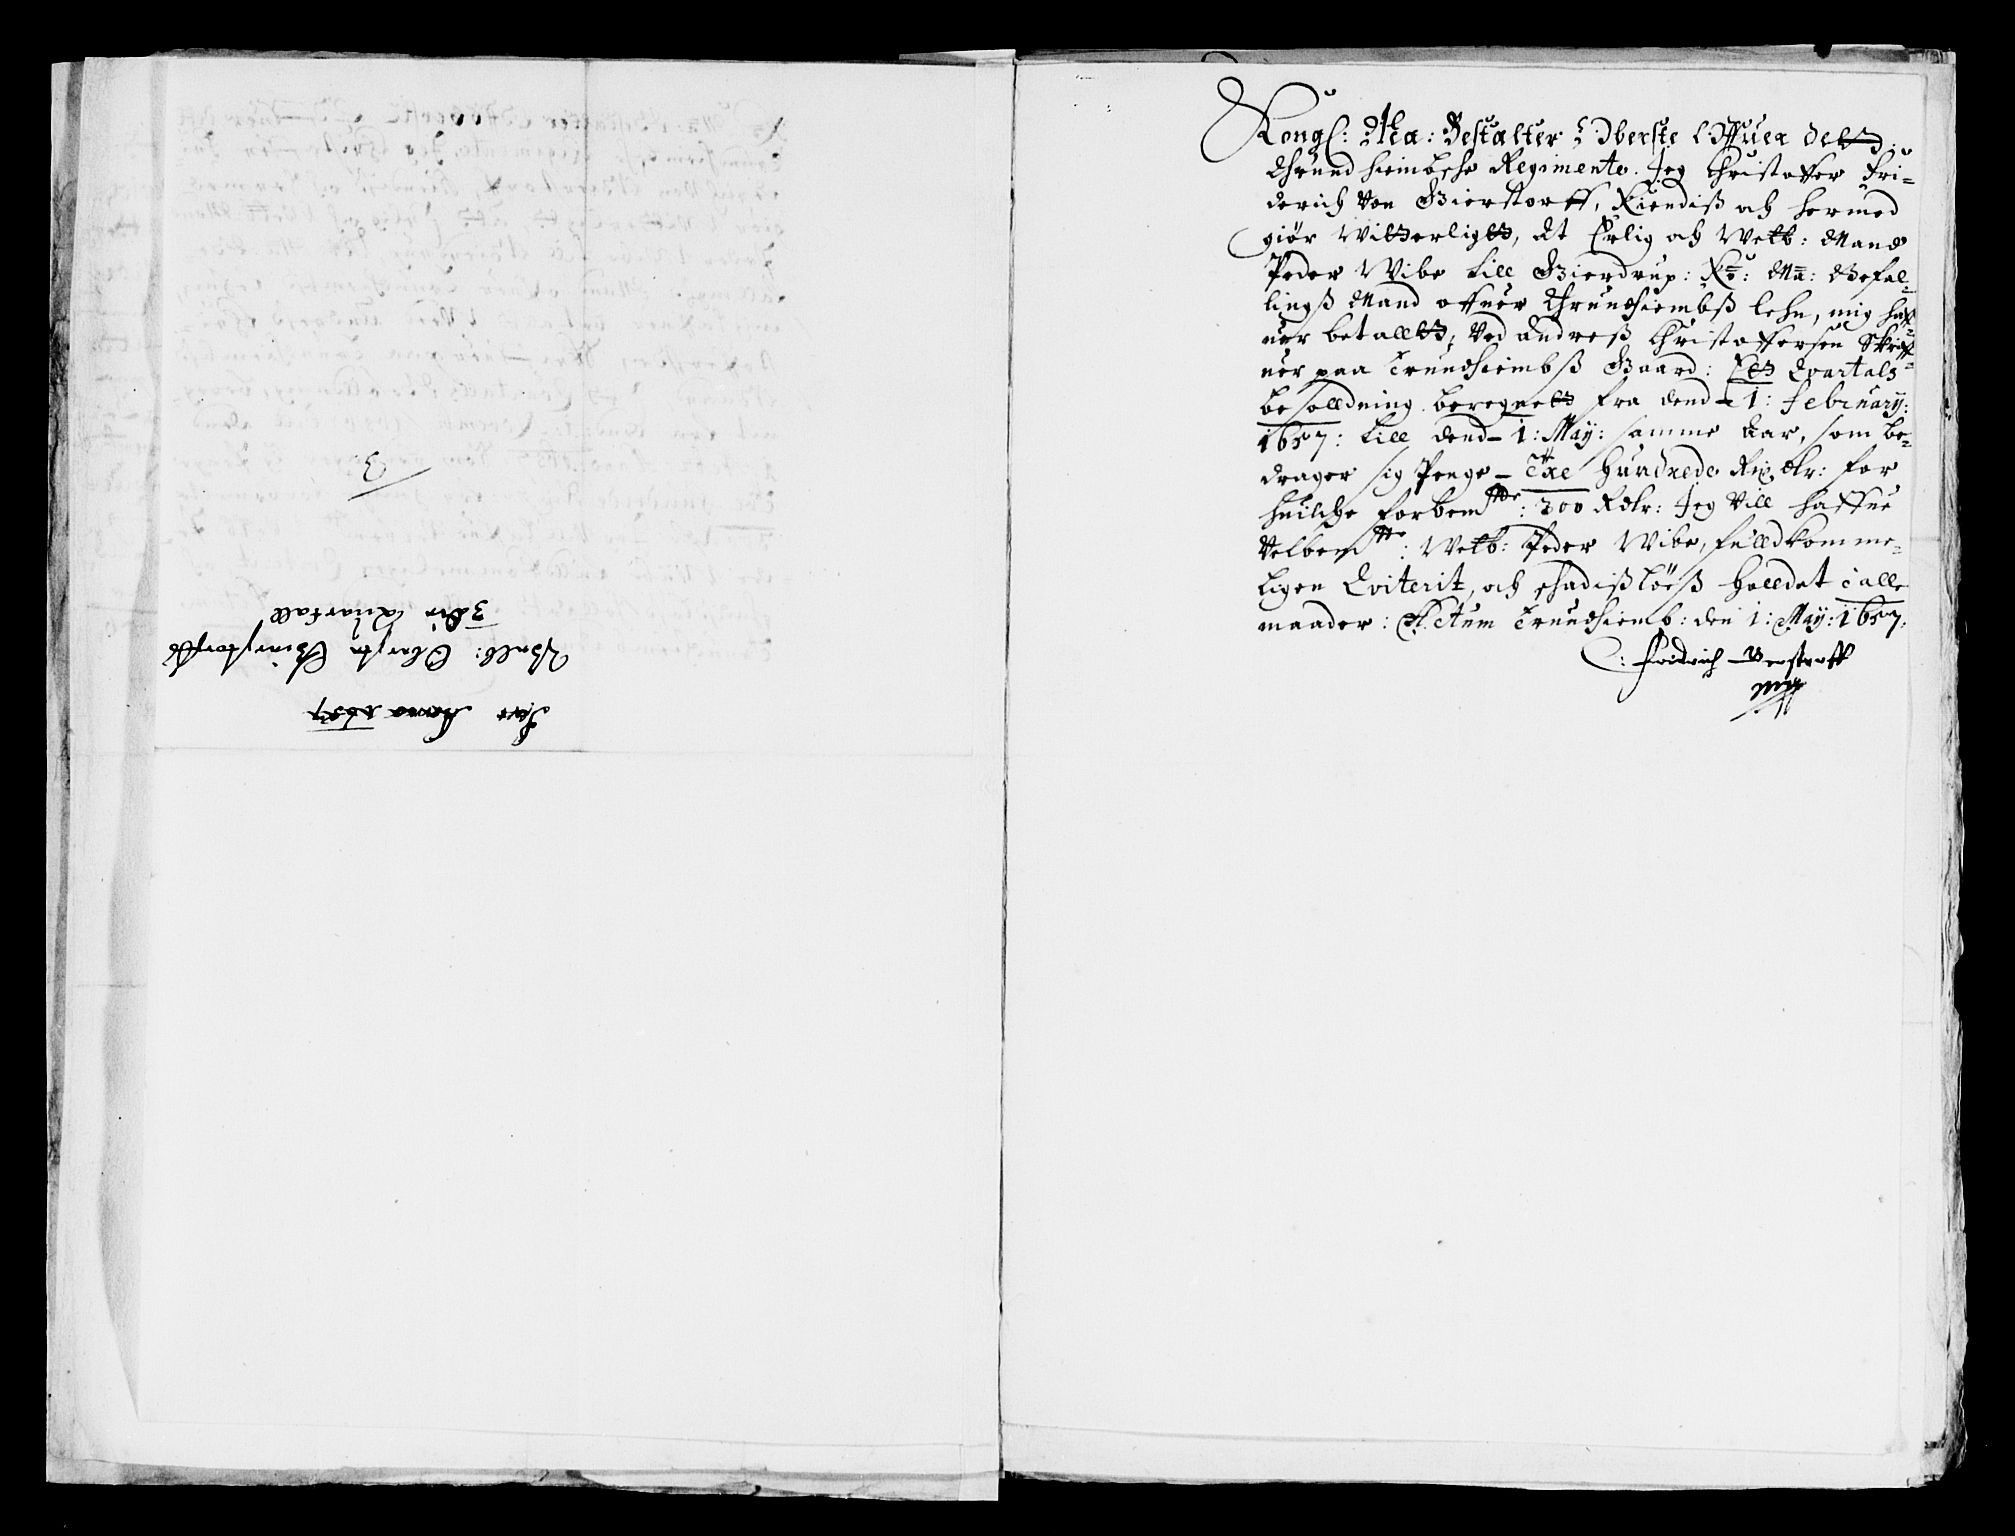 3
3die Quartall
Velb: Oberste Bierstorffs
Pro Anno 1657
Kongl: Ma: Bestalter Oberste Offuer dets
Thrundhiembsche Regimente. Jeg Christoffer Fri=
derich Von Bierstorff, Kiendiß och hermed
giör Witterligts, At Erlig och Welb: Mand
Peder Wibe till Gierdrup: Ko: Ma: Befal=
lingß Mand offuer Thrundhiembß lehn, mig haf=
uer betallts, Ved Andreß Christoffersen Skriff=
uer paa Trundhiembß Gaard: Ets Qvartals
besolldning beregnets fra dend 1: February:
1657: till dend 1: May: samme Aar, som be=
drager sig Penge - Tre Hundrede Rix dlr: for
huilche forbemte: 300 Rdlr: Jeg Vill haffue
Velbemte: Welb: Peder Wibe, fulldkomme=
ligen Qviterit, och schadißlöeß holldet i alle
maader: Actum Trundhiemb: den 1: May: 1657:
C: Fridrich v Berstorff
mpp